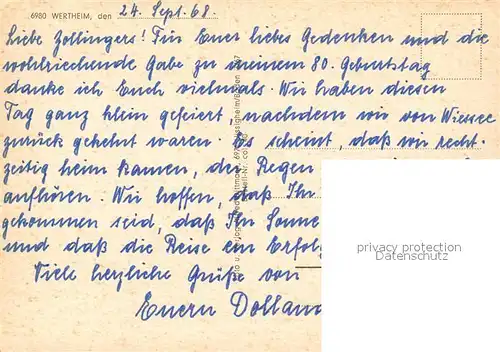 6980 WERTHEIM, den 24. Sept. 68.
Liebe Zollingers! Für Euer liebes Gedenken und die
wohlriechende Gabe zu meinem 80. Geburtstag
danke ich Euch vielmals. Wir haben diesen
Tag ganz klein gefeiert, nachdem wir von Wiessee
zurück gekehrt waren. Es scheint, daß wir recht-
zeitig heim kamen, der Regen
aufhören. Wir hoffen, daß Ihr
gekommen seid, daß Ihr Sonne
und daß die Reise ein Erfolg
Viele herzliche Grüße von
Euern
privacy protection
Datenschutz